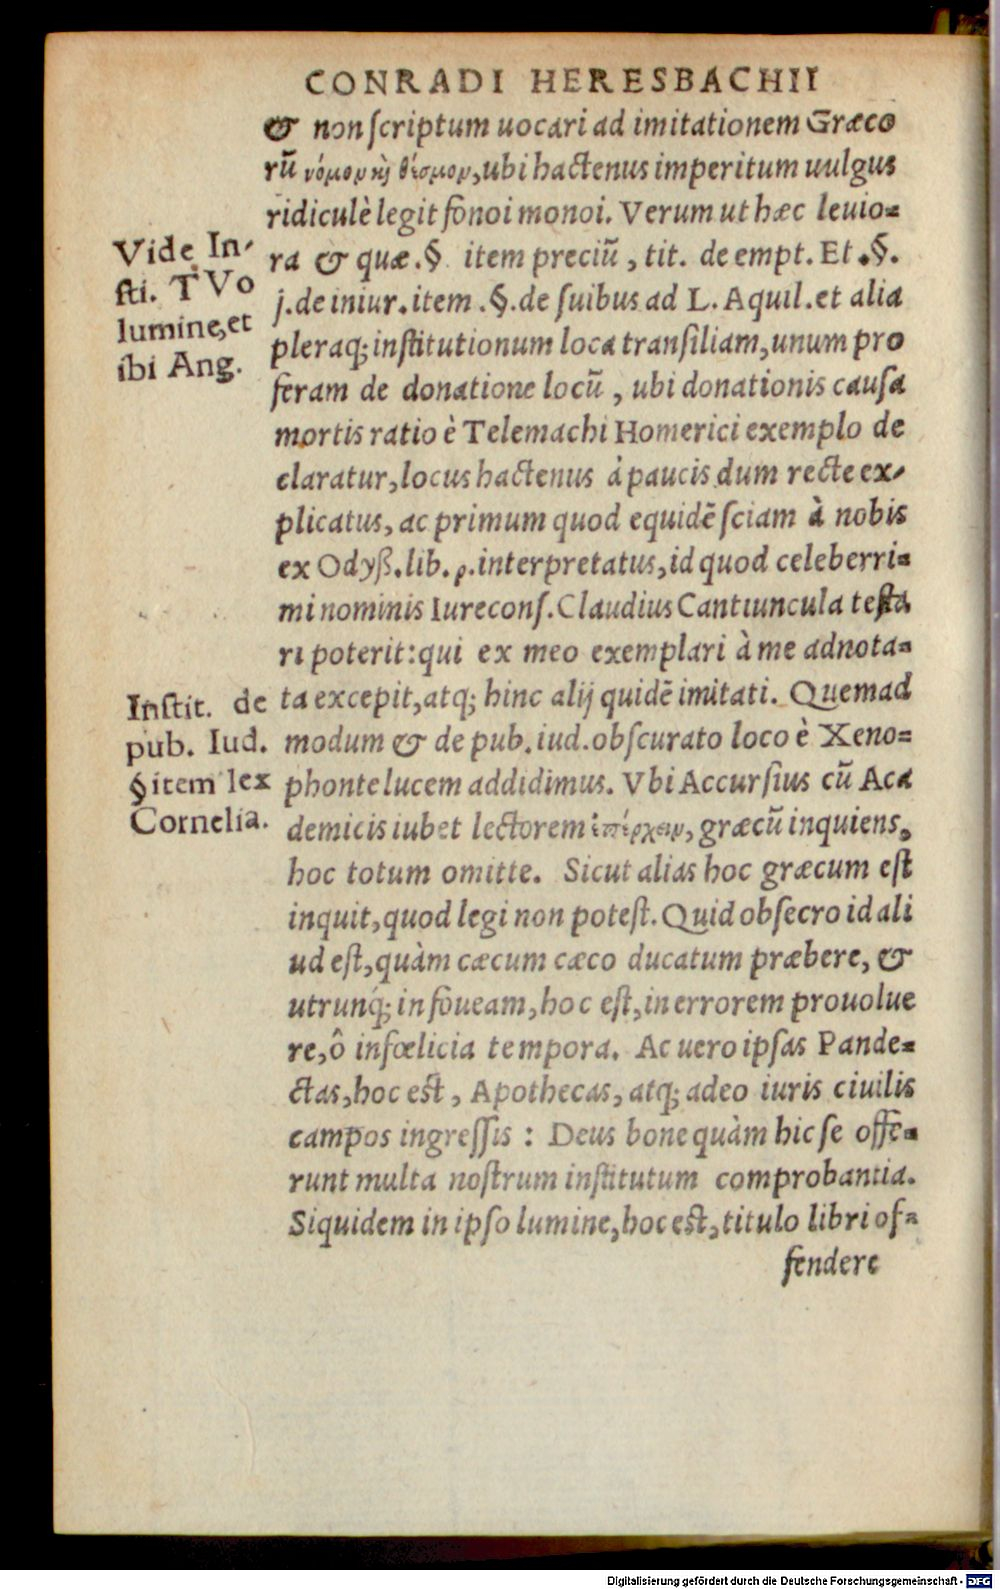 CONRADI HERESBACHII
& non scriptum uocari ad imitationem Græco
rũ νόμον κὴ θέσμον, ubi hactenus imperitum uulgus
ridiculè legit fonoi monoi. Verum ut hæc leuio=
ra & quæ .§ item preciũ, tit. de empt. Et .§.
j. de iniur. item .§. de suibus ad L. Aquil. et alia
pleraq; institutionum loca transiliam, unum pro
feram de donatione locũ, ubi donationis causa
mortis ratio è Telemachi Homerici exemplo de
claratur, locus hactenus à paucis dum recte ex-
plicatus, ac primum quod equidẽ sciam à nobis
ex Odyß. lib. ρ. interpretatus, id quod celeberri=
mi nominis Iurecons. Claudius Cantiuncula testa
ri poterit: qui ex meo exemplari à me adnota=
ta excepit, atq; hinc alij quidẽ imitati. Quemad
modum & de pub. iud. obscurato loco è Xeno=
phonte lucem addidimus. Vbi Accursius cũ Aca
demicis iubet lectorem ἐπέρχειν, græcũ inquiens,
hoc totum omitte. Sicut alias hoc græcum est
inquit, quod legi non potest. Quid obsecro id ali
ud est, quàm cæcum cæco ducatum præbere, &
utrunq́; in foueam, hoc est, in errorem prouolue
re, ô infœlicia tempora. Ac uero ipsas Pande=
ctas, hoc est, Apothecas, atq; adeo iuris ciuilis
campos ingressis : Deus bone quàm hic se offe=
runt multa nostrum institutum comprobantia.
Siquidem in ipso lumine, hoc est, titulo libri of=
fendere
Vide In-
sti. T Vo
lumine, et
ibi Ang.
Instit. de
pub. Iud.
§ item lex
Cornelia.
Digitalisierung gefördert durch die Deutsche Forschungsgemeinschaft - DFG